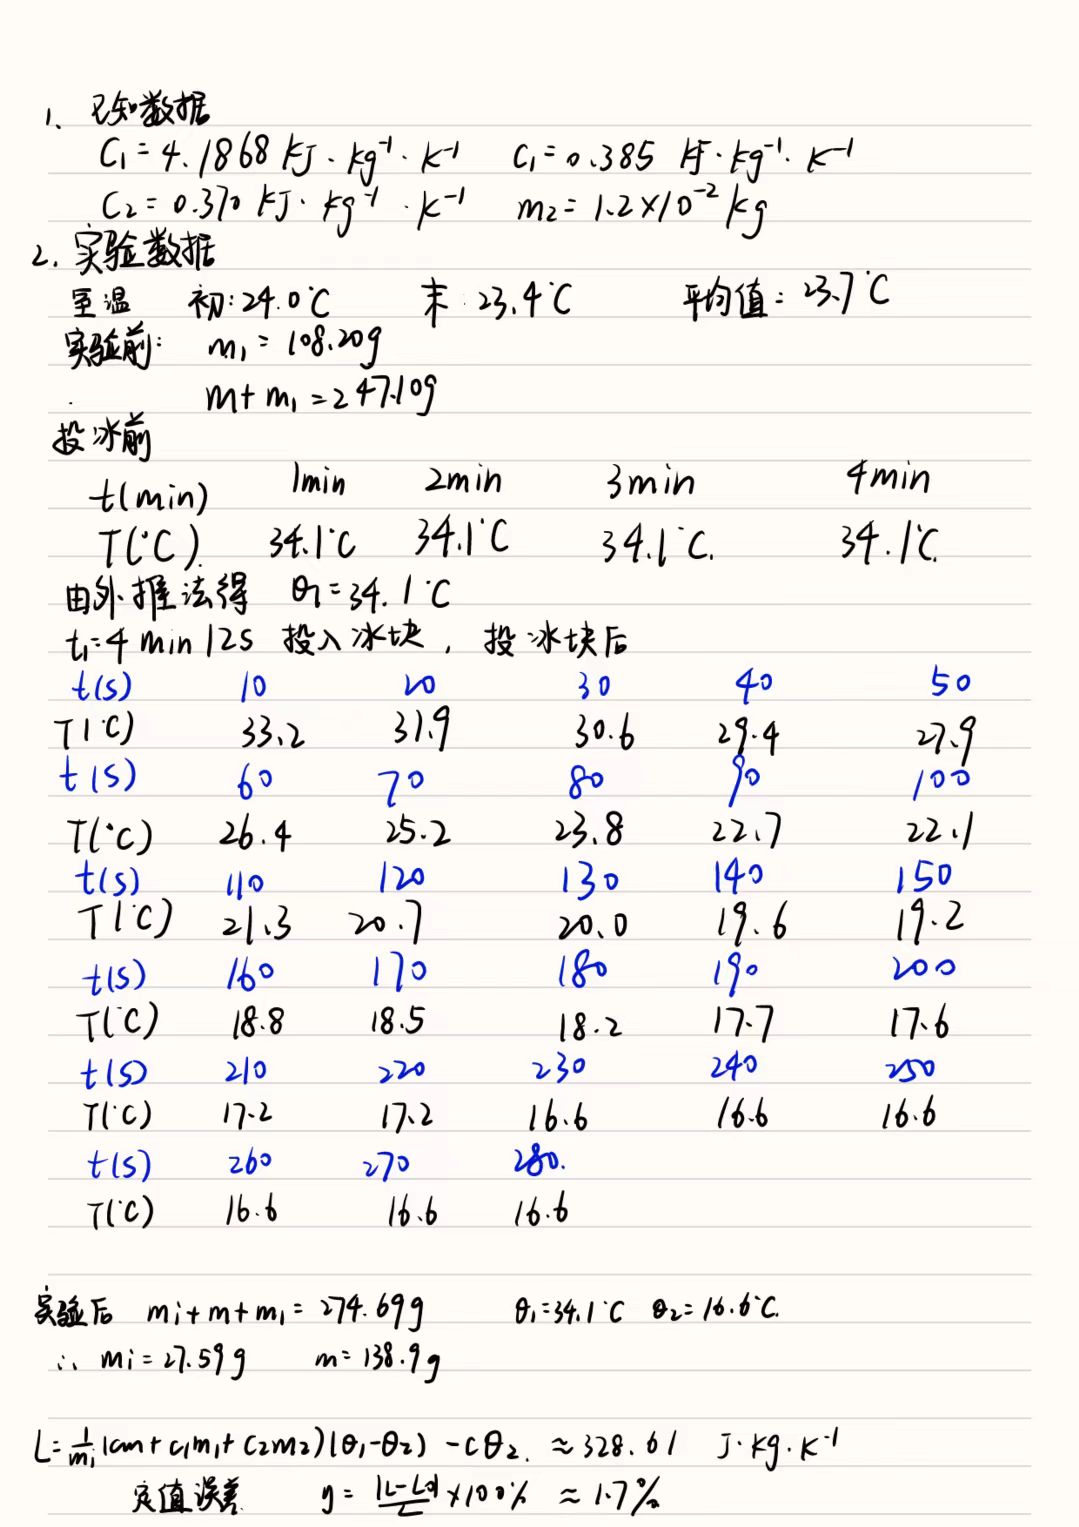 1、已知数据
C₁=4.1868 kJ·kg⁻¹·K⁻¹ C₁=0.385 kJ·kg⁻¹·K⁻¹
C₂=0.370 kJ·kg⁻¹·K⁻¹ m₂=1.2×10⁻² kg
2.实验数据
室温 初:24.0℃ 末:23.4℃ 平均值:23.7℃
实验前: m₁=108.20g
m+m₁=247.10g
投冰前
t(min) 1min 2min 3min 4min
T(℃) 34.1℃ 34.1℃ 34.1℃. 34.1℃.
由外推法得 θ₁=34.1℃
t₁=4min12s 投入冰块,投冰块后
t(s) 10 20 30 40 50
T(℃) 33.2 31.9 30.6 29.4 27.9
t(s) 60 70 80 90 100
T(℃) 26.4 25.2 23.8 22.7 22.1
t(s) 110 120 130 140 150
T(℃) 21.3 20.7 20.0 19.6 19.2
t(s) 160 170 180 190 200
T(℃) 18.8 18.5 18.2 17.7 17.6
t(s) 210 220 230 240 250
T(℃) 17.2 17.2 16.6 16.6 16.6
t(s) 260 270 280.
T(℃) 16.6 16.6 16.6
实验后 mi+m+m₁=274.69g θ₁=34.1℃ θ₂=16.6℃.
∴ mi=27.59g m=138.9g
L=1/mi(cm+c₁m₁+c₂m₂)(θ₁-θ₂)-cθ₂.≈328.61 J·kg·K⁻¹
定值误差 y=|L-L₀|/L×100%≈1.7%